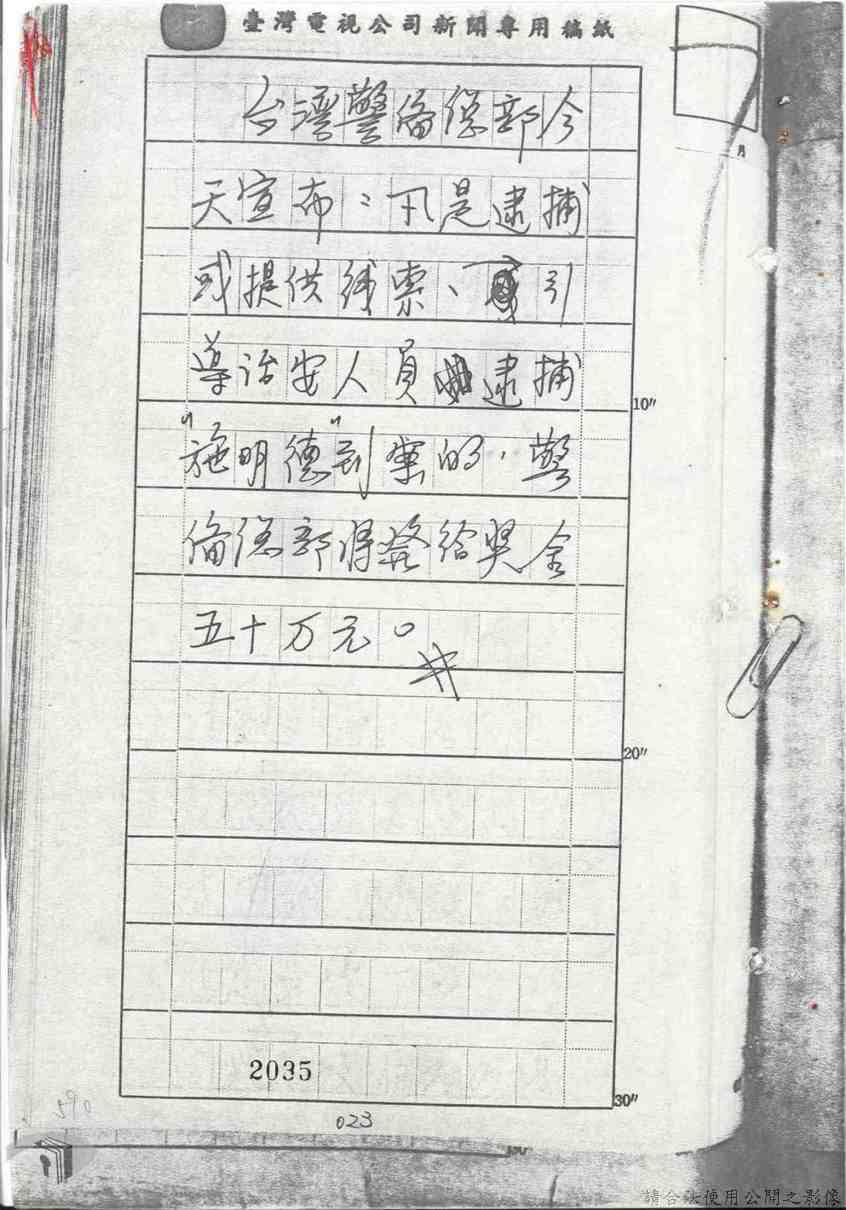 臺灣電視公司新聞專用稿紙
月
台灣警备总部今
天宣布：凡是逮捕
或提供线索、引
導治安人員逮捕
"施明德"到案的，警
备总部将發给奖金
五十万元。#
10"
20"
2035
30"
023
290
請合法使用公開之影像